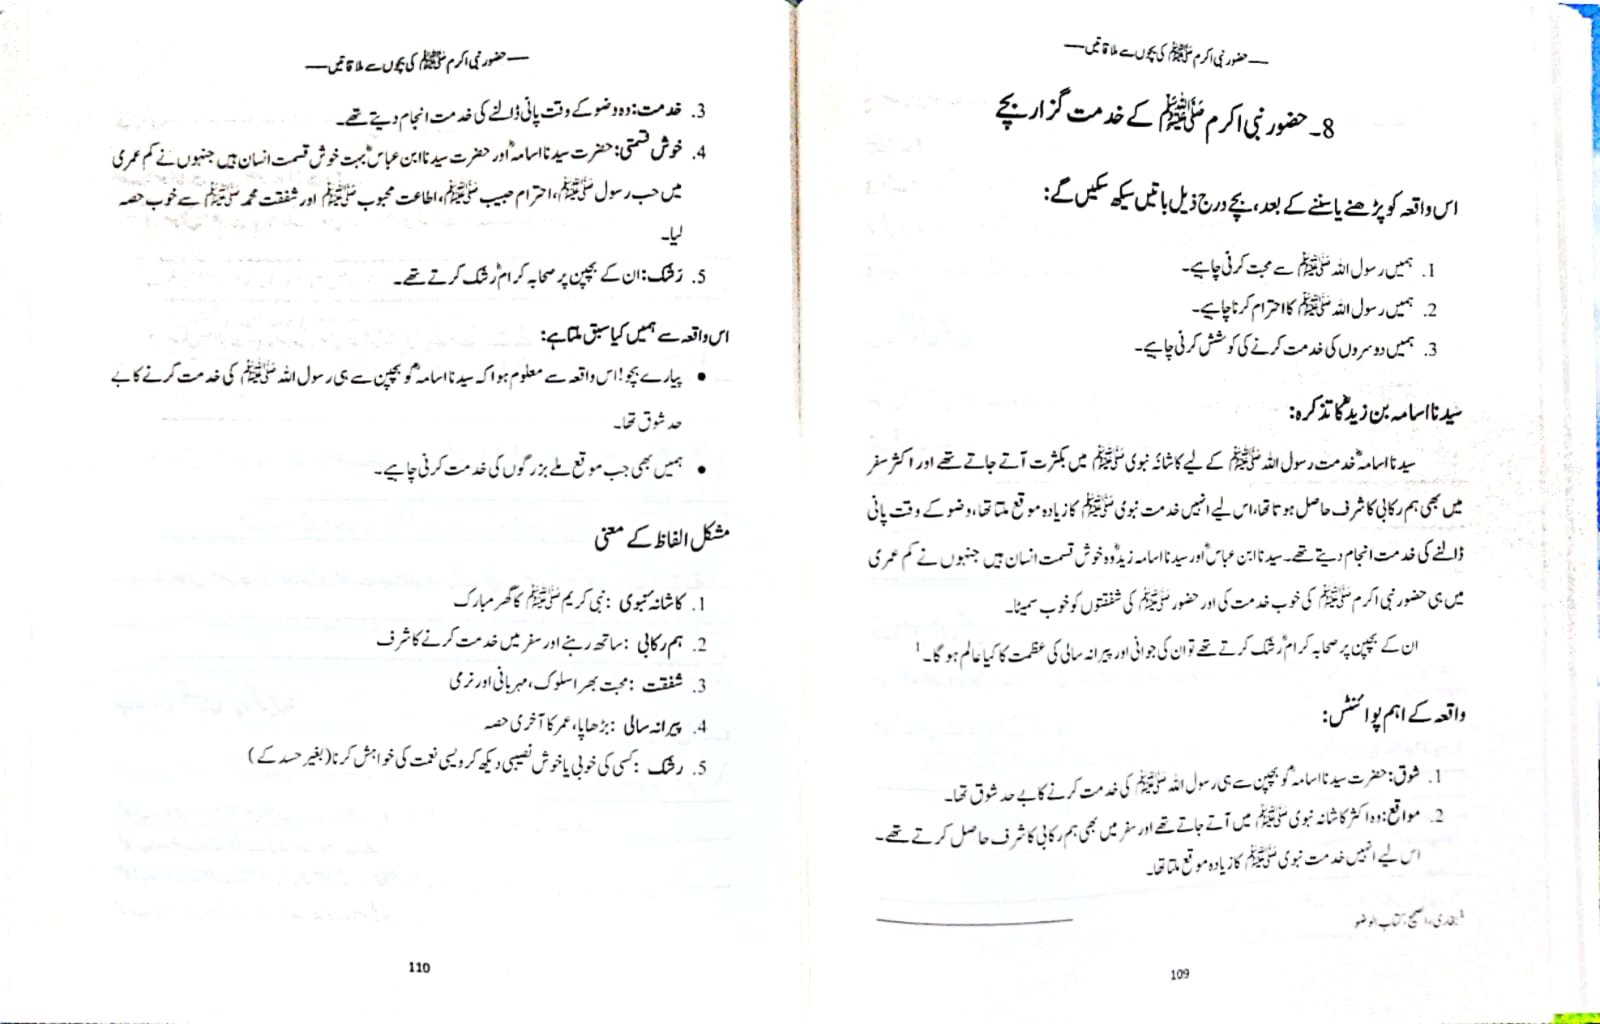 —حضور نبی اکرم ﷺ کی بچوں سے ملاقاتیں—
8۔ حضور نبی اکرم ﷺ کے خدمت گزار بچے
اس واقعہ کو پڑھنے یا سننے کے بعد، بچے درج ذیل باتیں سیکھ سکیں گے:
1. ہمیں رسول اللہ ﷺ سے محبت کرنی چاہیے۔
2. ہمیں رسول اللہ ﷺ کا احترام کرنا چاہیے۔
3. ہمیں دوسروں کی خدمت کرنے کی کوشش کرنی چاہیے۔
سیّدنا اسامہ بن زیدؓ کا تذکرہ:
سیدنا اسامہؓ خدمت رسول اللہ ﷺ کے لیے کاشانہ نبوی ﷺ میں بکثرت آتے جاتے تھے اور اکثر سفر
میں بھی ہم رکابی کا شرف حاصل ہوتا تھا، اس لیے انہیں خدمت نبوی ﷺ کا زیادہ موقع ملتا تھا، وضو کے وقت پانی
ڈالنے کی خدمت انجام دیتے تھے۔ سیدنا ابن عباسؓ اور سیدنا اسامہ زیدؓ وہ خوش قسمت انسان ہیں جنہوں نے کم عمری
میں ہی حضور نبی اکرم ﷺ کی خوب خدمت کی اور حضور ﷺ کی شفقتوں کو خوب سمیٹا۔
ان کے بچپن پر صحابہ کرامؓ رشک کرتے تھے تو ان کی جوانی اور پیرانہ سالی کی عظمت کا کیا عالم ہو گا۔ 1
واقعہ کے اہم پوائنٹس:
1. شوق: حضرت سیدنا اسامہؓ کو بچپن سے ہی رسول اللہ ﷺ کی خدمت کرنے کا بے حد شوق تھا۔
2. مواقع: وہ اکثر کاشانہ نبوی ﷺ میں آتے جاتے تھے اور سفر میں بھی ہم رکابی کا شرف حاصل کرتے تھے۔
اس لیے انہیں خدمت نبوی ﷺ کا زیادہ موقع ملتا تھا۔
1 بخاری، الصحیح، کتاب الوضو
109
—حضور نبی اکرم ﷺ کی بچوں سے ملاقاتیں—
3. خدمت: وہ وضو کے وقت پانی ڈالنے کی خدمت انجام دیتے تھے۔
4. خوش قسمتی: حضرت سیدنا اسامہؓ اور حضرت سیدنا ابن عباسؓ بہت خوش قسمت انسان ہیں جنہوں نے کم عمری
میں حب رسول ﷺ، احترام حبیب ﷺ، اطاعت محبوب ﷺ اور شفقت محمد ﷺ سے خوب حصہ
لیا۔
5. رَشک: ان کے بچپن پر صحابہ کرامؓ رشک کرتے تھے۔
اس واقعہ سے ہمیں کیا سبق ملتا ہے:
• پیارے بچو! اس واقعہ سے معلوم ہوا کہ سیدنا اسامہؓ کو بچپن سے ہی رسول اللہ ﷺ کی خدمت کرنے کا بے
حد شوق تھا۔
• ہمیں بھی جب موقع ملے بزرگوں کی خدمت کرنی چاہیے۔
مشکل الفاظ کے معنی
1. کاشانہ نبوی : نبی کریم ﷺ کا گھر مبارک
2. ہم رکابی : ساتھ رہنے اور سفر میں خدمت کرنے کا شرف
3. شفقت : محبت بھرا سلوک، مہربانی اور نرمی
4. پیرانہ سالی : بڑھاپا، عمر کا آخری حصہ
5. رشک : کسی کی خوبی یا خوش نصیبی دیکھ کر ویسی نعمت کی خواہش کرنا (بغیر حسد کے)
110